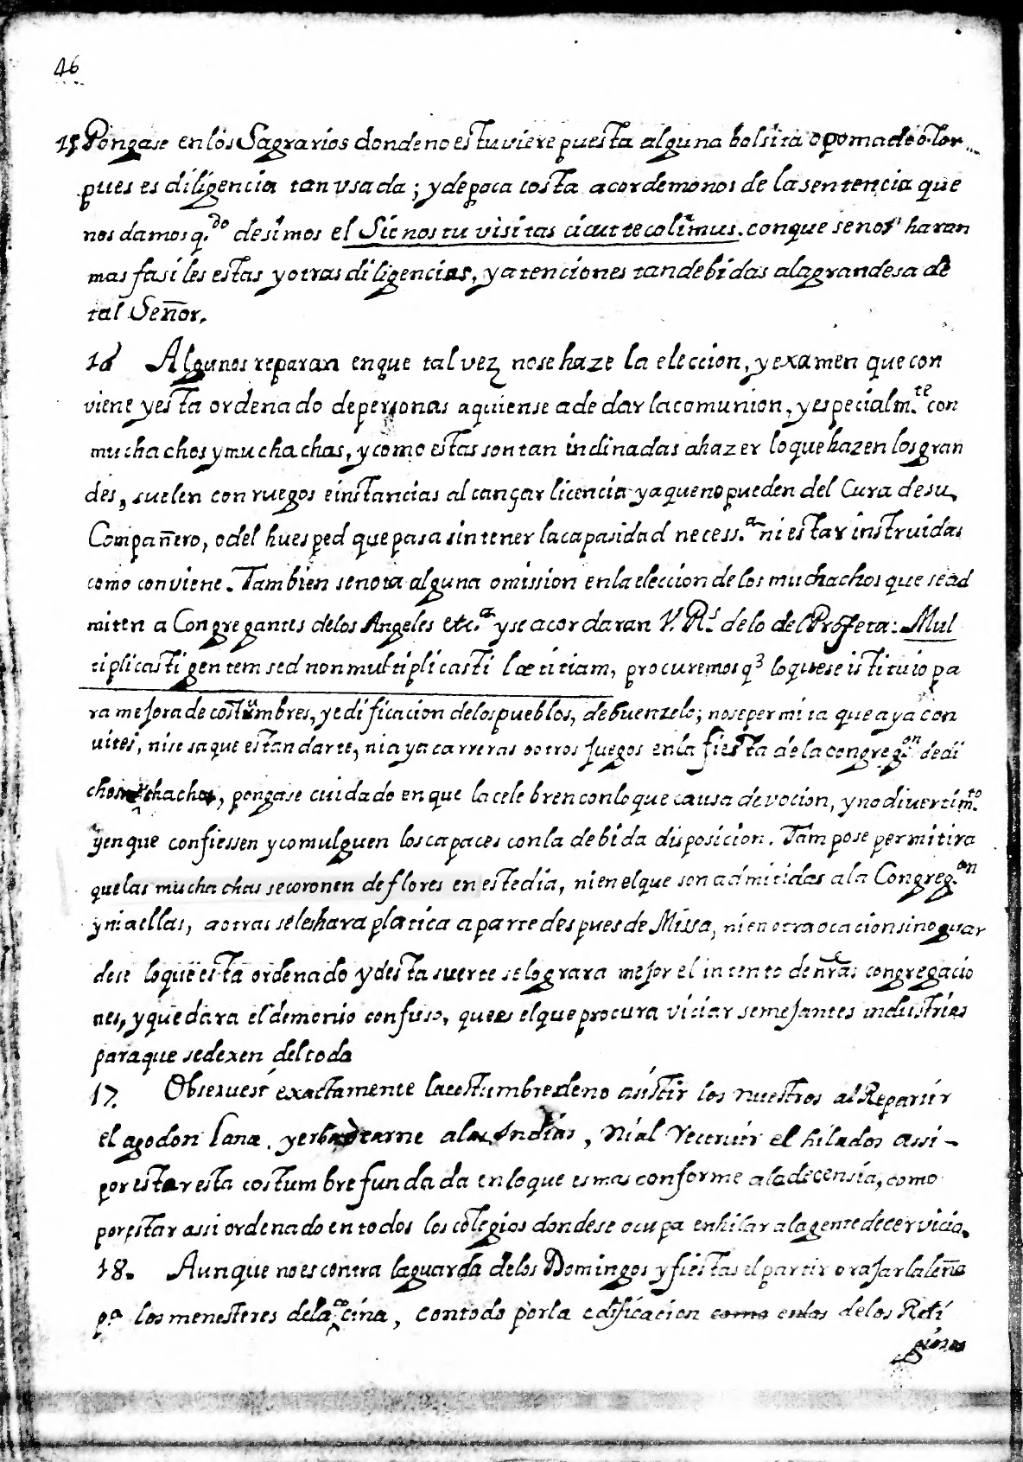 46
15 Pongase en los Sagrarios donde no estuviere puesta alguna bolsita o pomade ôlor
pues es diligencia tan vsada; y de poca costa acordemonos de la sentencia que
nos damos q.do desimos el Sic nos tu visitas sicut te colimus. conque se nos haran
mas fasiles estas y otras diligencias, y atenciones tan debidas a la grandesa de
tal Señor.
16 Algunos reparan enque tal vez no se haze la eleccion, y examen que con
viene y esta ordenado de personas a quien se a de dar la comunion, y especialm.te con
muchachos y muchachas, y como estas son tan inclinadas a hazer lo que hazen los gran
des, suelen con ruegos e instancias alcançar licencia ya que no pueden del Cura de su
Compañero, o del huesped que pasa sin tener la capasidad necess.a ni estar instruidas
como conviene. Tambien se nota alguna omission en la eleccion de los muchachos que se ad
miten a Congregantes de los Angeles etc.a y se acordaran V. Rs. de lo del Profeta: Mul
tiplicasti gentem sed non multiplicasti lætitiam, procuremos q3 lo que se istituio pa
ra mejora de costumbres, y edificacion de los pueblos, de buen zelo; no se permita que aya con
uites, ni se saque estandarte, ni aya carreras o otros juegos en la fiesta de la congreg.on de di
chos muchachos, pongase cuidado en que la celebren con lo que causa devocion, y no divertim.to
y en que confiessen y comulguen los capaces con la debida disposicion. Tampose permitira
que las muchachas se coronen de flores en este dia, ni en el que son admitidas a la Congreg.on
y ni a ellas, a otras se les hara platica a parte despues de Missa, ni en otra ocacion sino guar
dese lo que està ordenado y desta suerte se lograra mejor el intento de nras congregacio
nes, y quedara el demonio confuso, que es el que procura viciar semejantes industrias
para que se dexen del todo
17. Observese exactamente la costumbre de no asistir los nuestros al Repartir
el agodon lana, yerba o carne a las Indias, Ni al recevir el hilados assi
por estar esta costumbre fundada en lo que es mas conforme a la decensia, como
por estar assi ordenado en todos los colegios donde se ocupa en hilar a la gente de cervicio.
18. Aunque no es contra la guarda de los Domingos y fiestas el partir o rajar la leña
p.a los menesteres de la cocina, con todo por la edificacion como en los de los Reli
giosos